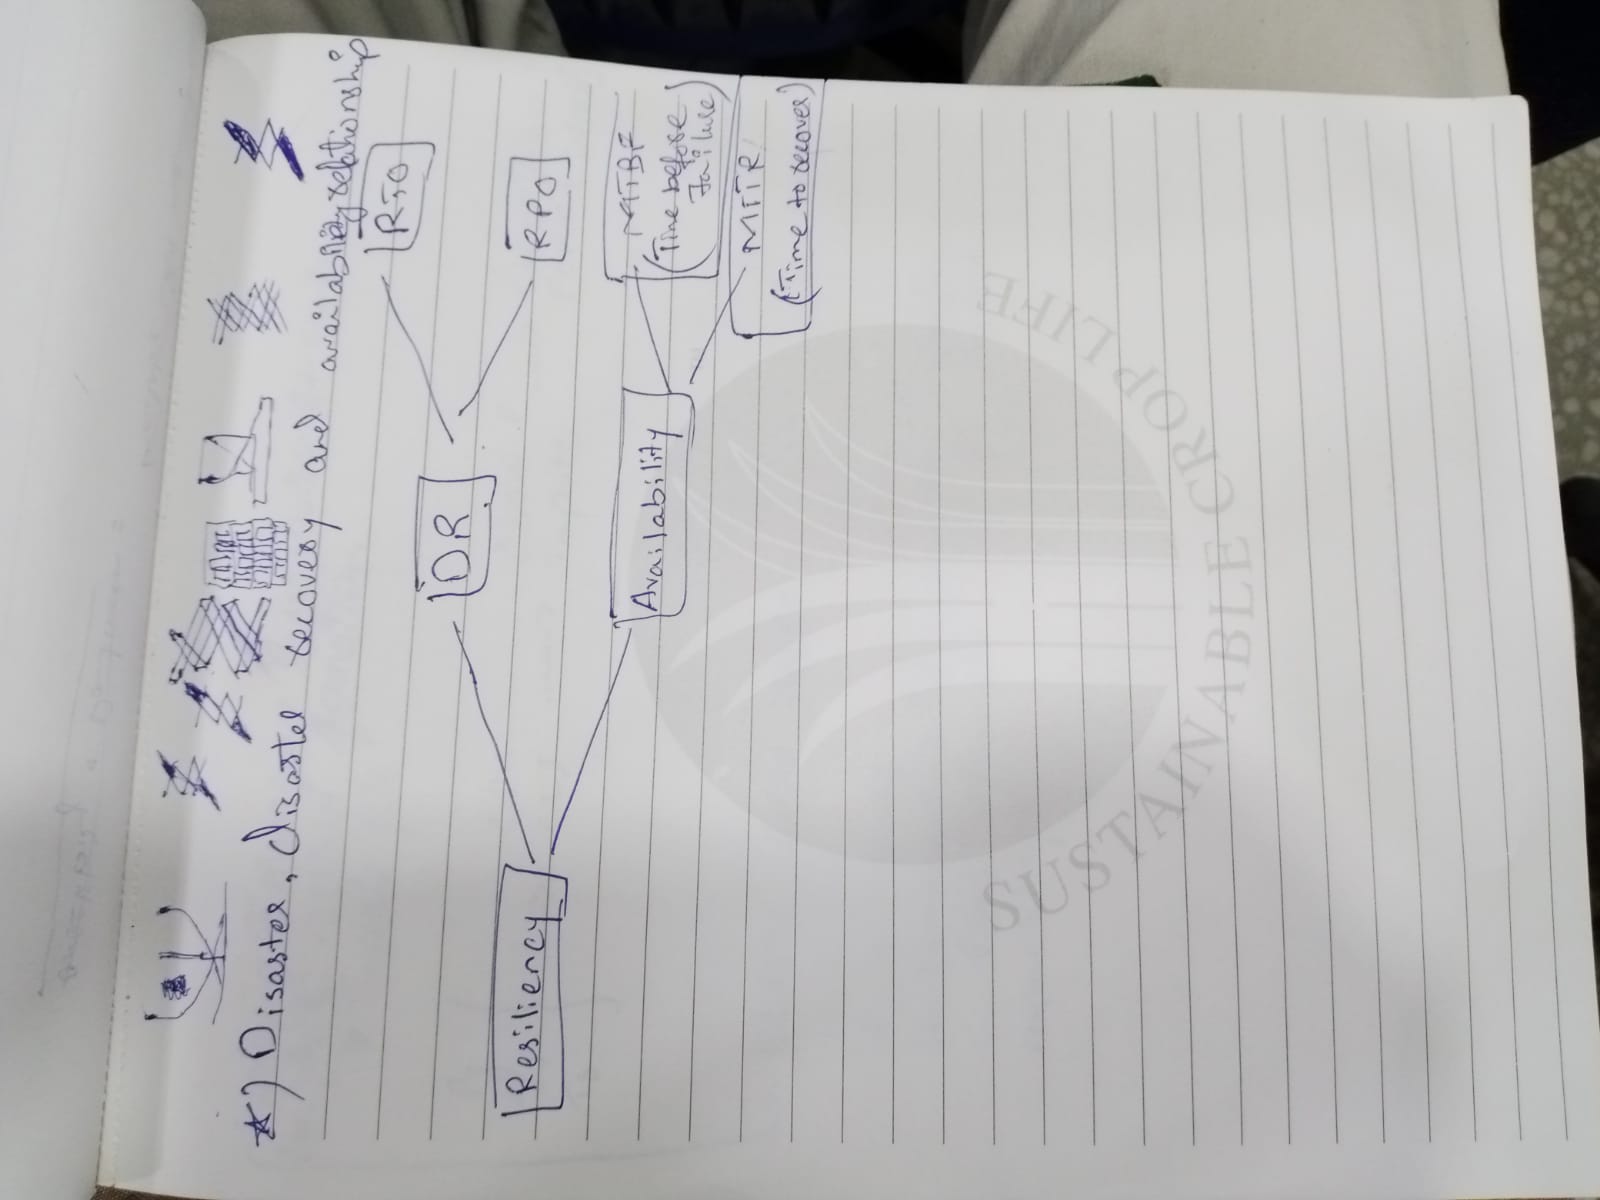 *) Disaster, disaster recovery and availability relationship
Resiliency
DR
RTO
RPO
Availability
MTBF
(Time before
Failure)
MTTR
(Time to recover)
SUSTAINABLE CROP LIFE